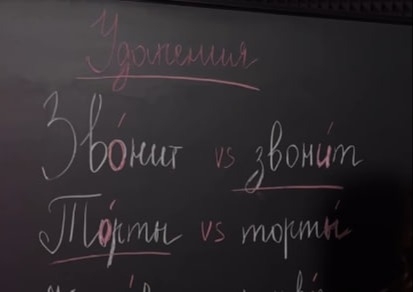 Ударения
Зво́нит vs звони́т
То́рты vs торты́